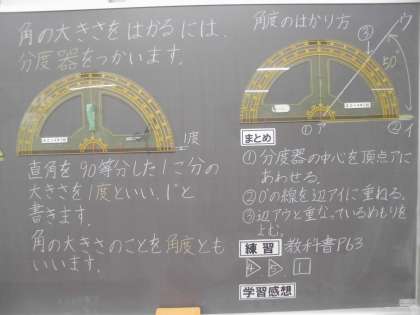 角の大きさをはかるには、
分度器をつかいます。
1度
直角を90等分した1こ分の
大きさを1度といい、1°と
書きます。
角の大きさのことを角度とも
いいます。
角度のはかり方
③
ウ
50
①ア
②イ
まとめ
①分度器の中心を頂点アに
あわせる。
②0°の線を辺アイに重ねる。
③辺アウと重なっているめもりを
よむ。
練習 教科書P63
4 5 1
学習感想